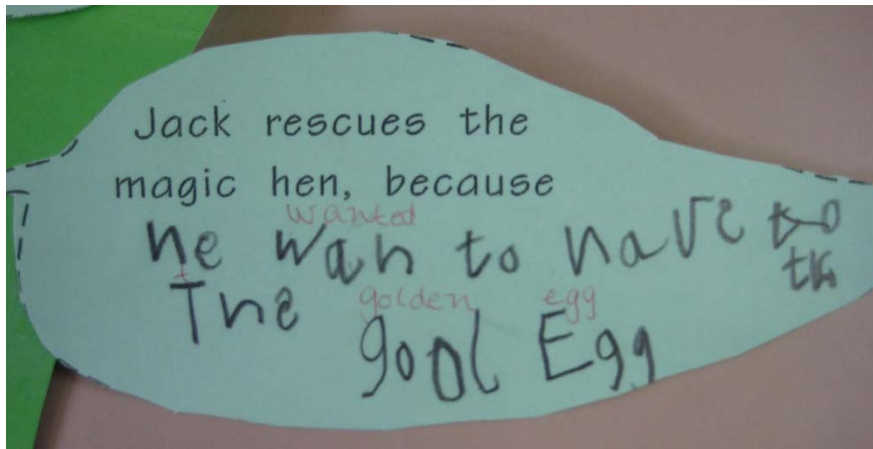 Jack rescues the
magic hen, because
wanted
he wan to have to
th
t
The
golden egg
gool Egg